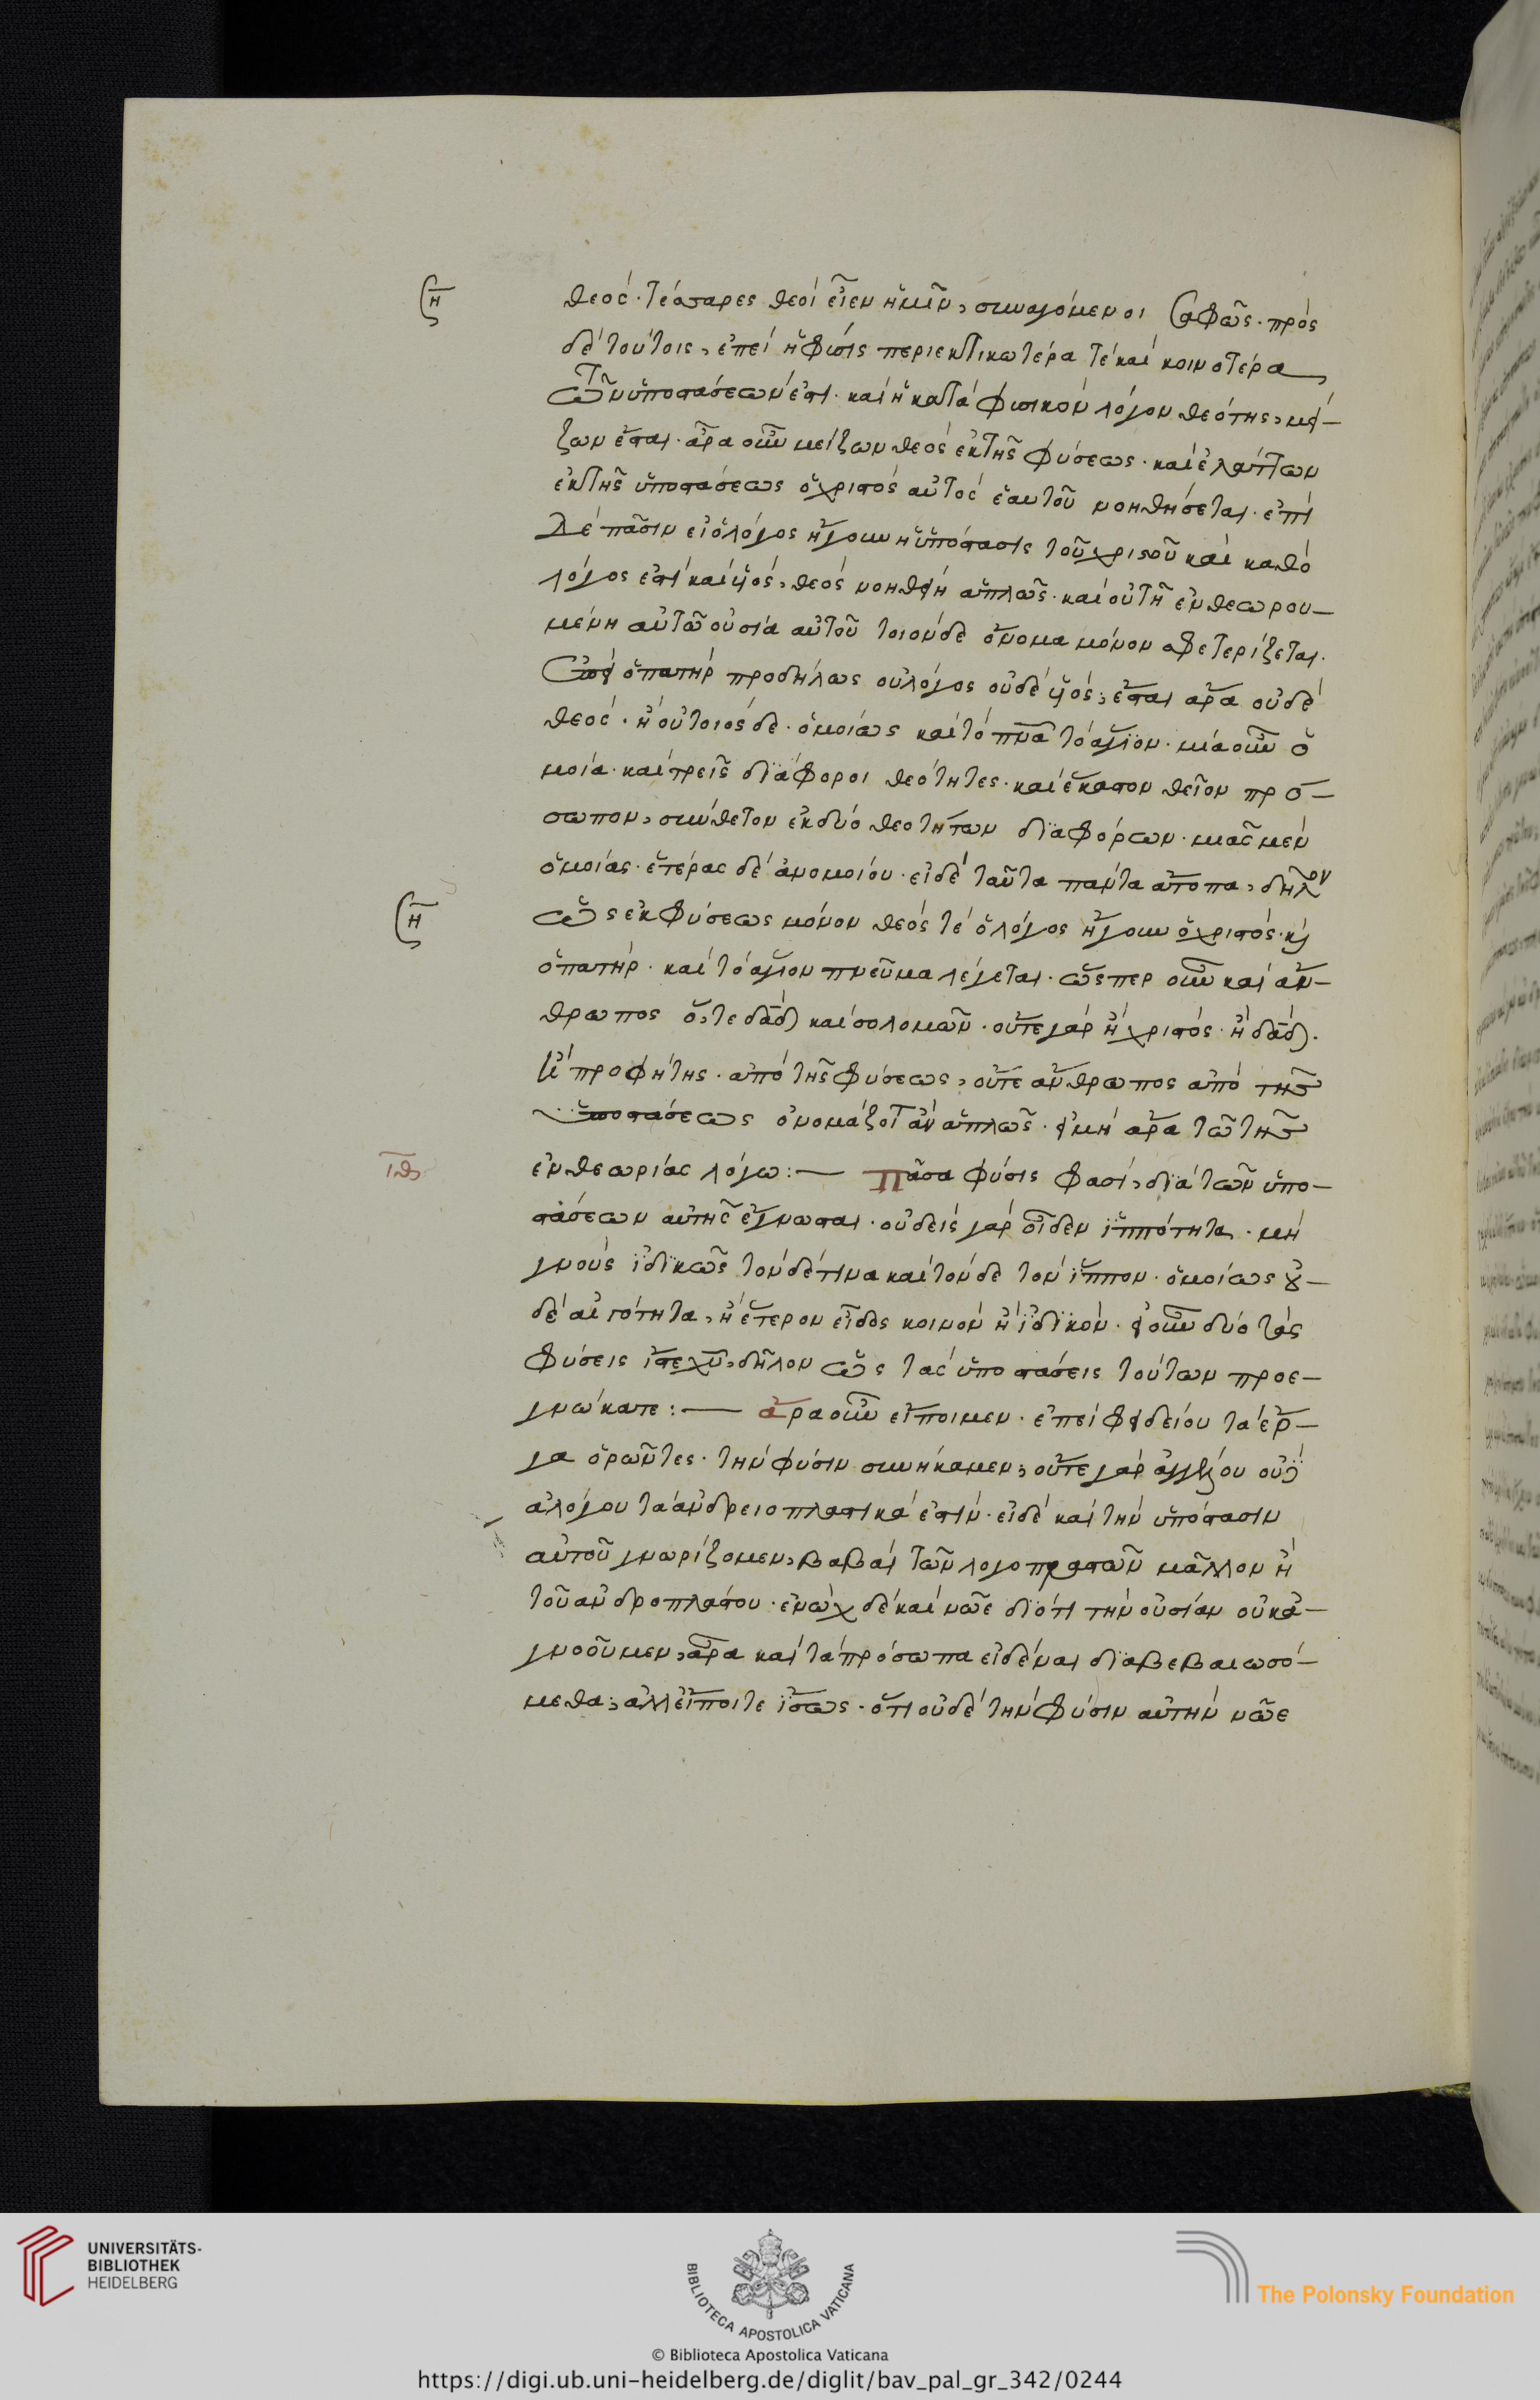 θεός· τέσσαρες θεοὶ εἶεν ἡμῖν, συναγόμενοι σαφῶς· πρὸς
δὲ τούτοις, ἐπεὶ ἡ φύσις περιεκτικωτέρα τὲ καὶ κοινοτέρα
τῶν ὑποστάσεων ἐστι· καὶ ἡ κατὰ φυσικὸν λόγον θεότης, μεί-
ζων ἔσται· ἆρα οὖν μείζων θεὸς ἐκ τῆς φύσεως· καὶ ἐλάττων
ἐκ τῆς ὑποστάσεως ὁ χριστὸς αὐτὸς ἑαυτοῦ νοηθήσεται· ἐπὶ
δὲ πᾶσιν εἰ ὁ λόγος ἤγουν ἡ ὑπόστασις τοῦ χριστοῦ καὶ καθὸ
λόγος ἐστὶ καὶ υἱός, θεὸς νοηθείη ἁπλῶς· καὶ οὐ τῇ ἐνθεωρου-
μένη αὐτῶ οὐσία αὐτοῦ τοιόνδε ὄνομα μόνον σφετερίζεται·
ἐπεὶ ὁ πατὴρ προδήλως οὐ λόγος οὐδὲ υἱός, ἔσται ἄρα οὐδὲ
θεός· ἢ οὐ τοιόσδε· ὁμοίως καὶ τὸ πνα τὸ ἅγϊον· μία οὖν ὁ
μοία· καὶ τρεῖς δϊάφοροι θεότητες· καὶ ἕκαστον θεῖον πρό-
σωπον, σύνθετον ἐκ δύο θεοτήτων δϊαφόρων· μιᾶς μὲν
ὁμοίας· ἑτέρας δὲ ἀνομοίου· εἰ δὲ ταῦτα πάντα ἄτοπα, δῆλον
ὡς ἐκ φύσεως μόνον θεός τὲ ὁ λόγος ἤγουν ὁ χριστός· κ
ὁ πατήρ· καὶ τὸ ἅγιον πνεῦμα λέγεται· ὥσπερ οὖν καὶ ἄν-
θρωπος ὅ, τε δᾱδ καὶ σολομῶν· οὔτε γὰρ ἢ χριστός· ἢ δᾱδ·
ἢ προφήτης· ἀπὸ τῆς φύσεως, οὔτε ἄνθρωπος ἀπὸ τῆς
ὑποστάσεως ὀνομάζοιτ ἂν ἁπλῶς· εἰ μὴ ἄρα τῶ τῆς
ιθ ἐνθεωρίας λόγω:— Πᾶσα φύσις φασί, δϊὰ τῶν ὑπο-
στάσεων αὐτῆς ἔγνωσται· οὐδεὶς γὰρ οἶδεν ἱππότητα· μὴ
γνοὺς ἰδϊκῶς τὸν δέτινα καὶ τόνδε τὸν ἵππον· ὁμοίως οὐ-
δὲ αἰγότητα, ἢ ἕτερον εἶδος κοινὸν ἢ ἰδϊκόν· εἰ οὖν δύο τὰς
φύσεις ἴστε χυ, δῆλον ὡς τὰς ὑποστάσεις τούτων προε-
γνώκατε:— ἆρα οὖν εἴποιμεν· ἐπεὶ φειδείου τὰ ἔρ-
γα ὁρῶντες· τὴν φύσιν συνήκαμεν, οὔτε γὰρ ἀγγέλου οὔτε
ἀλόγου τὰ ἀνδρειοπλαστικά ἐστιν· εἰ δὲ καὶ τὴν ὑπόστασιν
αὐτοῦ γνωρίζομεν, βαβαὶ τῶν λογοπλαστῶν μᾶλλον ἢ
τοῦ ἀνδροπλάστου· ἐνὼχ δὲ καὶ νῶε δϊότι τὴν οὐσίαν οὐκ ἀ-
γνοοῦμεν, ἆρα καὶ τὰ πρόσωπα εἰδέναι δϊαβεβαιωσό-
μεθα, ἀλλ εἴποιτε ἴσως· ὅτι οὐδὲ τὴν φύσιν αὐτὴν νῶε
UNIVERSITÄTS-
BIBLIOTHEK
HEIDELBERG
BIBLIOTECA APOSTOLICA VATICANA
The Polonsky Foundation
© Biblioteca Apostolica Vaticana
https://digi.ub.uni-heidelberg.de/diglit/bav_pal_gr_342/0244